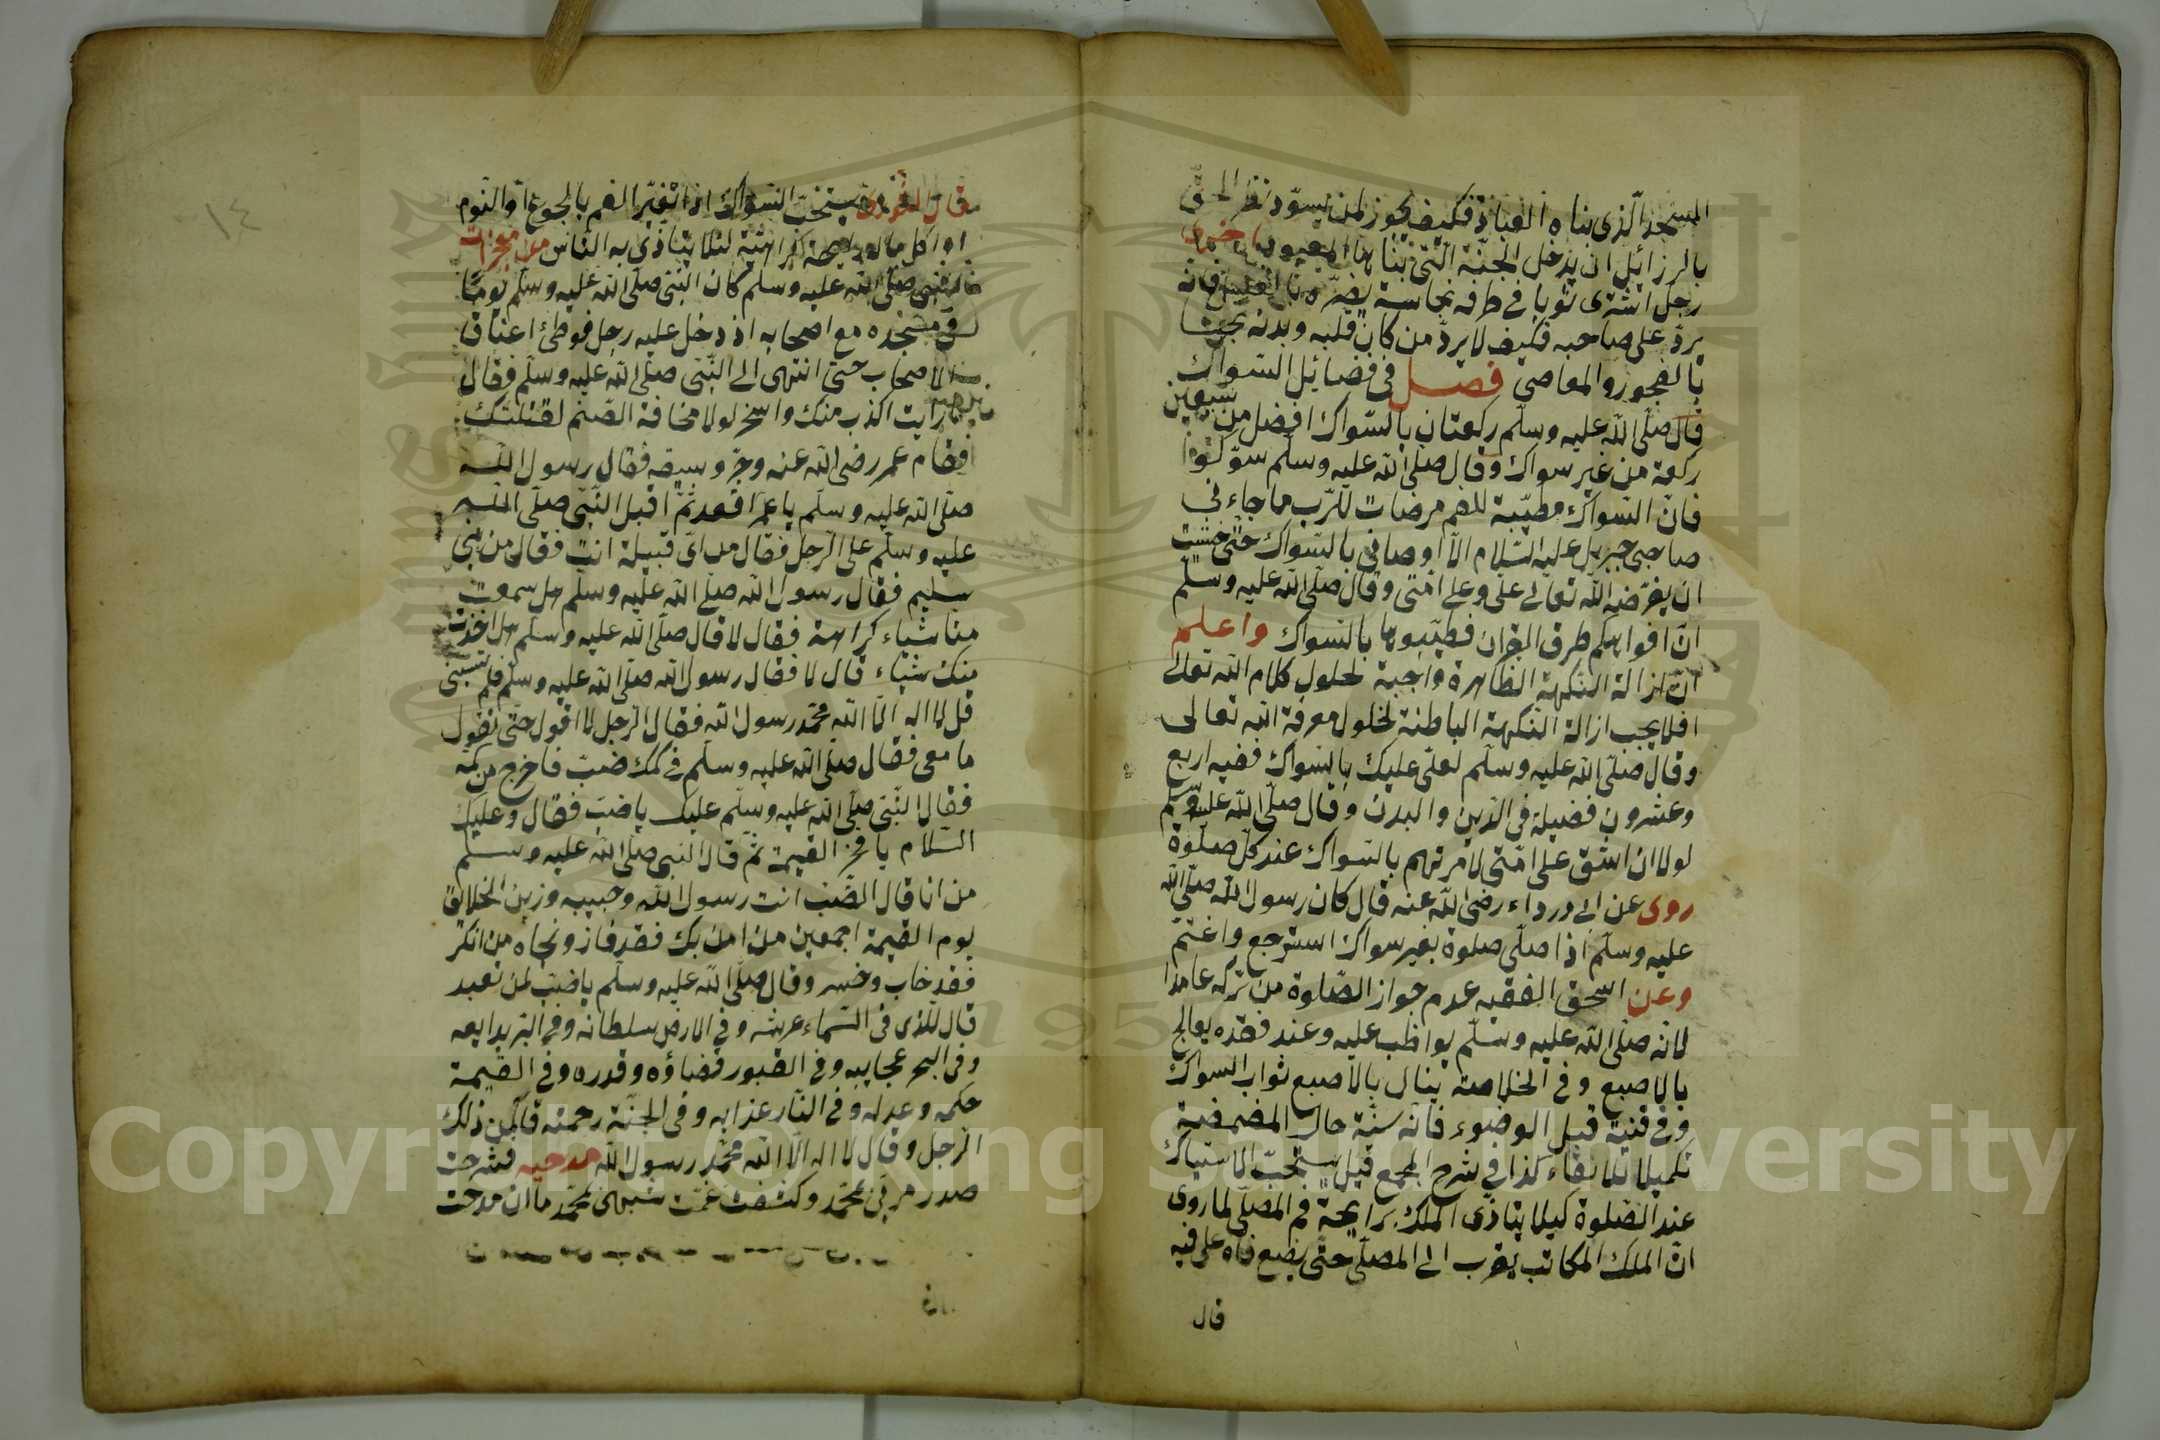 المسجد الّذى بناه العباد فكيف يجوز لمن يسوّد نظر الحقّ
بالرزائل ان يدخل الجنّة الّتى بناها المعبود
رجل اشترى ثوبا فى طرفه نجاسة فانه
يردّ على صاحبه فكيف لا يردّ من كان قلبه وبدنه نجسا
بالفجور والمعاصى فصل فى فضائل السّواك
قال صلّى اللّه عليه وسلّم ركعتان بالسّواك افضل من سبعين
ركعة من غير سواك وقال صلّى اللّه عليه وسلّم سوّكوا
فانّ السّواك مطيّبة للفم مرضات للرّب ما جاءنى
صاحبى جبريل عليه السّلام الّا اوصانى بالسّواك حتّى خشيت
ان يفرّضه اللّه تعالى علىّ وعلى امّتى وقال صلّى اللّه عليه وسلّم
انّ افواهكم طرق القران فطيّبوها بالسّواك واعلم
انّ ازالة النّكهة الظاهرة واجبة لحلول كلام اللّه تعالى
افلا يجب ازالة النّكهة الباطنة لحلول معرفة اللّه تعالى
وقال صلّى اللّه عليه وسلّم لعلى عليك بالسّواك ففيه اربع
وعشرون فضيلة فى الدّين والبدن وقال صلّى اللّه عليه وسلم
لولا ان اشقّ على امّتى لامرتهم بالسّواك عند كلّ صلوة
روى عن ابى درداء رضى اللّه عنه قال كان رسول اللّه صلّى اللّه
عليه وسلّم اذا صلّى صلوة بغير سواك استرجع واغتمّ
وعن اسحق الفقيه عدم جواز الصّلوة من تركه عامدا
لانّه صلّى اللّه عليه وسلّم يواظب عليه وعند فقده يعالج
بالاصبع وفى الخلاصة ينال بالاصبع ثواب السواك
وفى قنية قبل الوضوء فانّه سنّة حال المضمضة
تكميلا للانقاء كذا فى شرح المجمع قيل يستحبّ الاستياك
عند الصّلوة كيلا يتاذى الملك برايحة فم المصلّى لما روى
انّ الملك الكاتب يقرب الى المصلّى حتّى يضع فاه على فيه
قال
١٤
قال يستحبّ السّواك اذا تغيّر الفم بالجوع او النّوم
او اكل ماله رايحة كراهية لئلا يتاذى به النّاس من معجزات
النّبى صلّى اللّه عليه وسلم كان النّبى صلّى اللّه عليه وسلّم يوما
فى مسجده مع اصحابه اذ دخل عليه رجل فوطئ اعناق
الاصحاب حتى انتهى الى النّبى صلّى اللّه عليه وسلّم فقال
ما رايت اكذب منك واسحر لولا مخافة الصّنم لقتلتك
فقام عمر رضى اللّه عنه وجرّ وسيفه فقال رسول اللّه
صلّى اللّه عليه وسلّم يا عمر اقعد ثمّ اقبل النّبى صلّى اللّه
عليه وسلّم على الرّجل فقال من اىّ قبيلة انت فقال من بنى
سليم فقال رسول اللّه صلّى اللّه عليه وسلّم هل سمعت
منّا شياء كراهة فقال لا قال صلّى اللّه عليه وسلّم هل اخذت
منك شياء قال لا فقال رسول اللّه صلّى اللّه عليه وسلّم فلم تسبّنى
قل لا اله الّا اللّه محمّد رسول اللّه فقال الرّجل لا اقول حتّى تقول
ما معى فقال صلّى اللّه عليه وسلّم فى كمّك ضبّ فاخرج من كمّه
فقال النّبى صلّى اللّه عليه وسلّم عليك يا ضبّ فقال وعليك
السّلام يا فخر القيمة ثمّ قال النّبى صلّى اللّه عليه وسلّم
من انا قال الضّب انت رسول اللّه وحبيبه وزين الخلائق
يوم القيمة اجمعين من امن بك فقد فاز ونجاه من انكر
فقد خاب وخسر وقال صلّى اللّه عليه وسلّم يا ضبّ لمن تعبد
قال للّذى فى السّماء عرشه وفى الارض سلطانه وفى البرّ بدايعه
وفى البحر عجايبه وفى القبور قضاؤه وقدره وفى القيمة
حكمه وعدله وفى النّار عذابه وفى الجنّة رحمته فامن ذلك
الرّجل وقال لا اله الّا اللّه محمّد رسول اللّه مدحيه فشرحت
صدر محمّد وكشفت لمحمّد ما ان مدحت
Copyright © King Saud University
1957